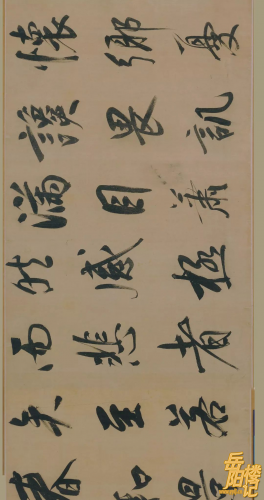 懷鄉憂
讒畏譏
滿目蕭
然感極
而悲者
矣至若
春和景
岳阳楼记